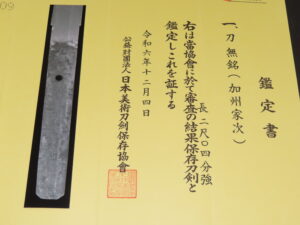 鑑定書
一、刀 無銘（加州家次）
長 二尺〇四分強
右は當協會に於て審査の結果保存刀剣と
鑑定しこれを証する
令和六年十二月四日
公益財團法人日本美術刀剣保存協會